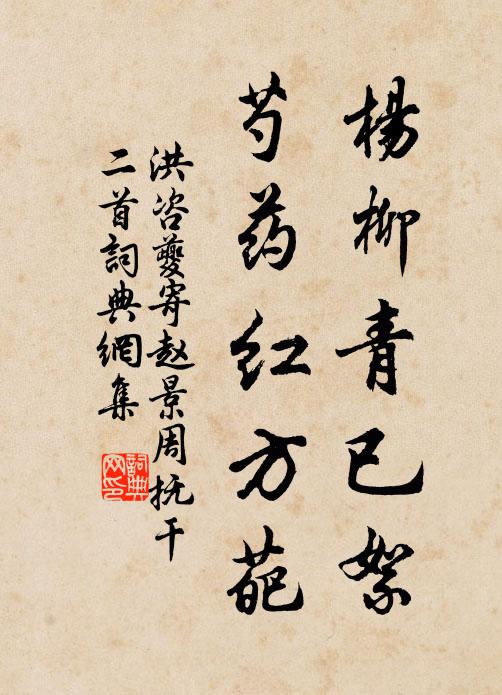 楊柳青已絮
芍药红方葩
洪咨夔寄赵景周抚干
二首詞典網集
詞典
网印